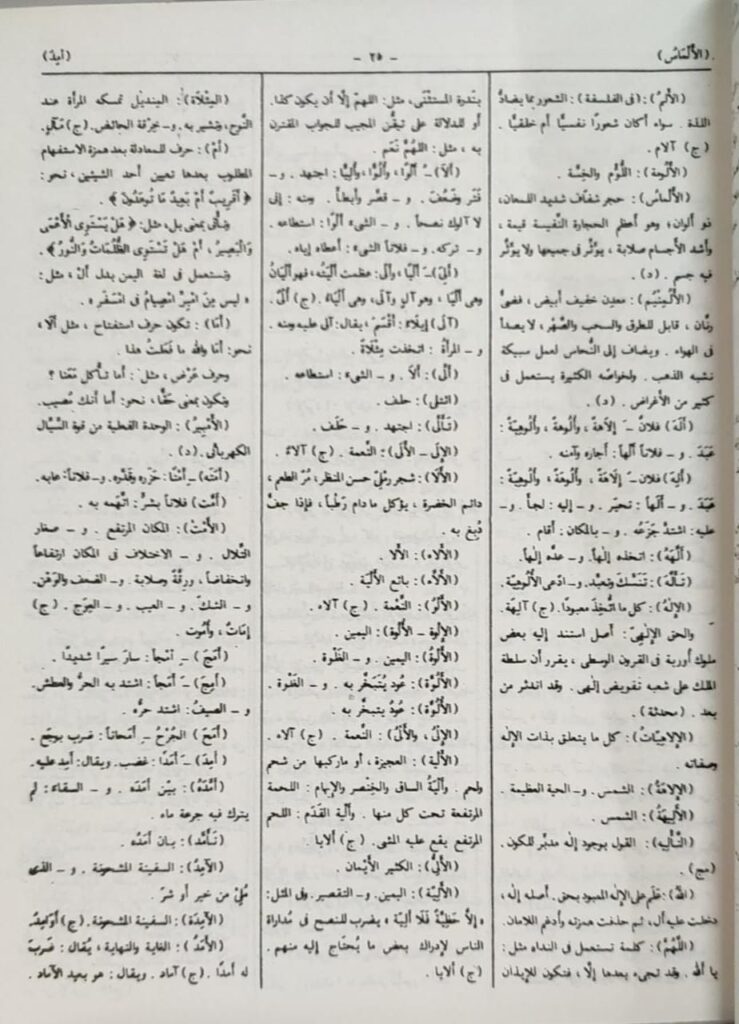 (الأَلْمَاسُ)
- ٢٥ -
(أَبِدَ)
(الأَلَمُ): (فى الفلسفة): الشعور بما يضادُّ
اللذة . سواء أكان شعورًا نفسيًّا أم خلقيًّا .
(ج) آلام .
(الأَلُومة): اللُّؤم والخِسَّة .
(الأَلْماسُ): حجر شفَّاف شديد اللمعان،
ذو ألوان؛ وهو أعظم الحجارة النَّفيسة قيمة ،
وأشد الأجسام صلابة ، يؤثّر فى جميعها ولا يؤثّر
فيه جسم . (د) .
(الأَلُمِنْيَم): معدِن خفيف أبيض ، فضىٌّ
رنَّان ، قابل للطرق والسحب والصَّهْر ، لا يصدأ
فى الهواء . ويضاف إلى النُّحاس لعمل سبيكة
تشبه الذهب . ولخواصّه الكثيرة يستعمل فى
كثير من الأغراض . (د) .
(أَلَهَ) فلانٌ - إِلاَهَةً ، وأُلُوهةً ، وأُلُوهِيَّة :
عَبَدَ . و - فلانًا أَلْهًا : أجاره وآمنه .
(أَلِهَ) فلان - إِلَاهَةً ، وأُلُوهَةً ، وأُلُوهِيَّةً :
عَبَدَ . و - أَلَهًا : تحيّر . و - إليه : لجأ . و -
عليه : اشتدّ جَزَعُه . و - بالمكان : أقام .
(أَلَّهَهُ): اتخذه إلهًا . و - عدّه إلهًا .
(تَأَلَّهَ): تَنَسَّكَ وتعبَّد . و - ادّعى الأُلُوهِيَّة .
(الإِلهُ): كل ما اتُّخِذَ معبودًا . (ج) آلِهَة .
والحق الإلهىّ : أصل استند إليه بعض
ملوك أوربة فى القرون الوسطى ، يقرر أن سلطة
الملك على شعبه تفويض إلهى . وقد اندثر من
بعد . (محدثة) .
(الإلاهيّاتُ): كل ما يتعلق بذات الإله
وصفاته .
(الإلاهَةُ): الشمس . و - الحية العظيمة .
(الأَلِيهَةُ): الشمس .
(التَّأليه): القول بوجود إله مدبّر للكون .
(مج) .
(اللهُ): عَلَم على الإله المعبود بحق . أصله إله ،
دخلت عليه أل ، ثم حذفت همزته وأدغم اللامان .
(اللهُمَّ): كلمة تستعمل فى النداء مثل :
يا ألله . وقد تجىء بعدها إلّا ، فتكون للإيذان
بندرة المستثنَى ، مثل : اللهمّ إلّا أن يكون كذا .
أو للدلالة على تيقُّن المجيب للجواب المقترن
به ، مثل : اللهُمَّ نَعَم .
(أَلاَ) - أَلْوًا ، وأُلُوًّا ، وأُلِيًّا : اجتهد . و -
فَتَر وضَعُف . و - قصَّر وأبطأ . ومنه : إنى
لا آلوك نصحًا . و - الشىء أَلْوًا : استطاعه .
و - تركه . و - فلانًا الشىء : أعطاه إيّاه .
(أَلِىَ) - أَلْيًا ، وأَلًى : عظمت أليتُه ، فهو أَلْيان
وهى أَلْيا ، وهو آلٍ وآلَى ، وهى أَلْياءُ . (ج) أُلْىٌ .
(آلَى) إيلاءً : أقْسَمَ . يقال : آلى عليه ومنه .
و - المرأة : اتخذت مِئْلَاة .
(أَلَّى): أَلاَ . و - الشىءَ : استطاعه .
(ائتلى): حلف .
(تَأَلَّى): اجتهد . و - حَلَف .
(الإِلَى - الأَلَى): النِّعمة . (ج) آلاءٌ .
(الأَلَا): شجر رمليّ حسن المنظر ، مُرّ الطعم ،
دائم الخضرة ، يؤكل ما دام رَطْبًا ، فإذا جفَّ
دُبِغ به .
(الأَلَاء): الأَلَا .
(الأَلَّاءُ): بائع الأَلْيَة .
(الأَلْوُ): النِّعْمة . (ج) آلاء .
(الإِلْوة - الأَلْوة): اليمين .
(الأَلْوَةُ): اليمين . و - الغَلْوة .
(الأُلُوَّة): عُود يُتَبَخَّر به . و - الغَلْوة .
(الأَلُوَّةُ): عُودٌ يتبخَّر به .
(الإِلْىُ ، والأَلْىُ): النعمة . (ج) آلاء .
(الأَلْيَة): العجيزة ، أو ما ركبها من شحم
ولحم . وأَلْيَةُ الساق والخِنْصر والإبهام : اللحمة
المرتفعة تحت كل منها . وأَلية القَدَم : اللحم
المرتفع يقع عليه المشى . (ج) ألايا .
(الأَلِىُّ): الكثير الأَيْمان .
(الأَلِيَّة): اليمين . و - التقصير . وفى المثل :
« إلّا حَظِيَّةً فَلَا أَلِيَّة » يضرب للنصح فى مُداراة
الناس لإدراك بعض ما يُحتَاج إليه منهم .
(ج) ألايا .
(المِئْلَاة): المِنديل تمسكه المرأة عند
النَّوح ، وتشير به . و - خِرْقة الحائض . (ج) مآلٍ .
(أَمْ): حرف للمعادلة بعد همزة الاستفهام
المطلوب بعدها تعيين أحد الشيئين ، نحو :
﴿ أَقَرِيبٌ أَمْ بَعِيدٌ مَا تُوعَدُونَ ﴾ .
وتأتى بمعنى بل ، مثل : ﴿ هَلْ يَسْتَوِى الأَعْمَى
وَالْبَصِيرُ ، أَمْ هَلْ تَسْتَوِى الظُّلُمَاتُ وَالنُّورُ ﴾ .
وتستعمل فى لغة اليمن بدل أل ، مثل :
« ليس مِنَ امْبِرِّ امْصِيامُ فى امْسَفَر » .
(أَمَا): تكون حرف استفتاح ، مثل ألَا ،
نحو : أمَا والله ما فعلتُ هذا .
وحرف عَرْض ، مثل : أما تأكل مَعَنا ؟
وتكون بمعنى حَقًّا ، نحو : أما أنك مُصيب .
(الأَمْبِيرُ): الوحدة الفعلية من قوة السَّيَّال
الكهربائى . (د) .
(أَمَتَه) - أَمْتًا : حَزَره وقدّره . و - فلانًا : عابه .
(أُمِّت) فلانًا بشرّ : اتُّهمه به .
(الأَمْتُ): المكان المرتفع . و - صغار
التّلال . و - الاختلاف فى المكان ارتفاعًا
وانخفاضًا ، ورِقَّةً وصلابة . و - الضعف والوَهْن .
و - الشكّ . و - العيب . و - العِوَج . (ج)
إماتٌ ، وأُمُوت .
(أَمَجَ) - أَمْجًا : سار سيرًا شديدًا .
(أَمِجَ) - أَمَجًا : اشتد به الحرّ والعطش .
و - الصيفُ : اشتد حرُّه .
(أَمَحَ) الجُرْحُ - أَمَحانًا : ضرب بوجع .
(أَمِدَ) - أَمَدًا : غضب . ويقال : أَمِد عليه .
(أَمَّدَهُ): بيّن أمَدَه . و - السقاءَ : لم
يترك فيه جرعة ماء .
(تَأَمَّد): بان أَمَدُه .
(الآمِدُ): السفينة المشحونة . و - الذى
مُلِئَ من خير أو شرّ .
(الآمِدَة): السفينة المشحونة . (ج) أوَامِد .
(الأَمَدُ): الغاية والنهاية ، يُقال : ضَرَبَ
له أمدًا . (ج) آماد . ويقال : هو بعيد الآماد .